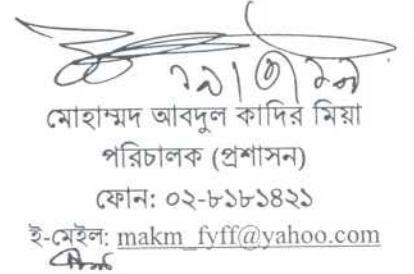 মোহাম্মদ আবদুল কাদির মিয়া
পরিচালক (প্রশাসন)
ফোন: ০২-৮১৮১৪২১
ই-মেইল: makm_fyff@yahoo.com